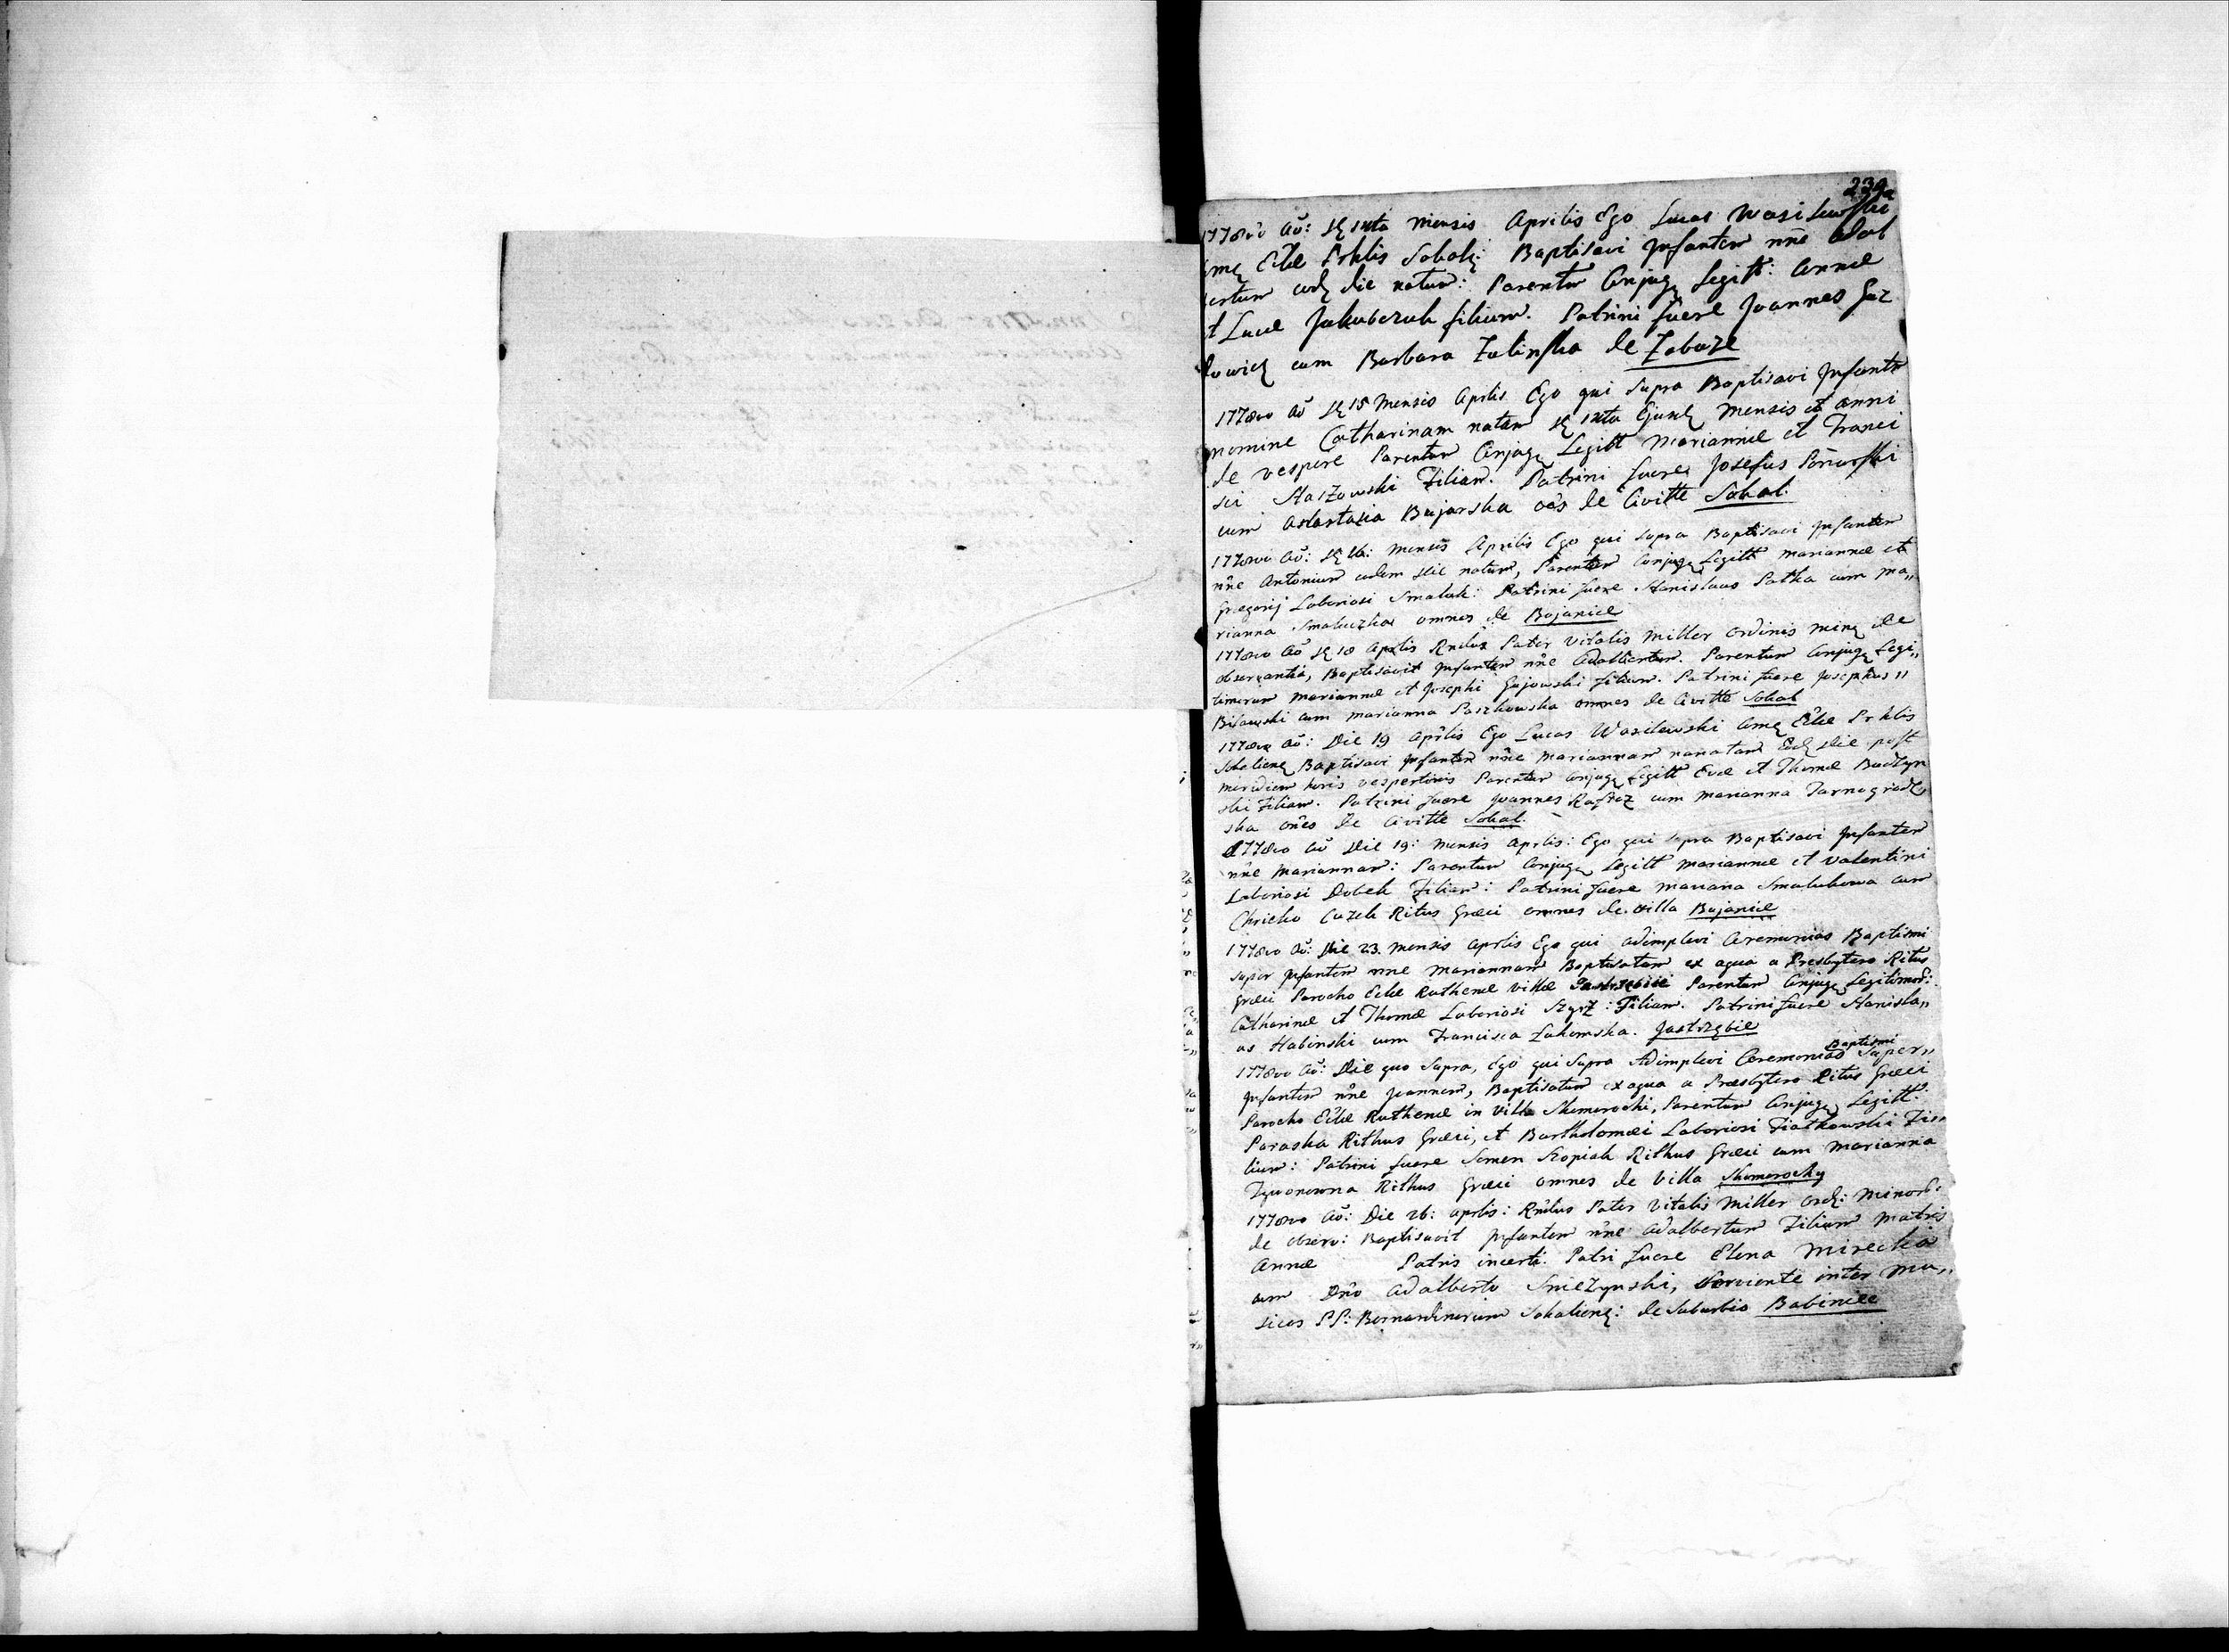 239
1778vo Aō: dę 14ta Mensis Aprilis Ego Lucas Wasilewski
Comę Eclæ Prhlis Sokalę: Baptisavi Infantem nñe Adal
bertum eodę die natum: Parentum Conjugę Legitt: Annæ
et Lucæ Jakubczuk filium. Patrini fuere Joannes
cum Barbara Zalinska de Zabuże
1778vo Aō dę 15 Mensis Aprlis Ego qui Supra Baptisavi Infante
nomine Catharinam natam dę 14ta Ejusdę Mensis et anni
de vespere Parentum Conjugę Legitt Mariannæ et Franci
sci Staszowski Filiam. Patrini fuere Josefus
cum Anastasia Bujarska oēs de Civitte Sokal.
1778vo Aō: dę 16: Mensis Aprilis Ego qui supra Baptisavi Infantem
nñe Antonium eodem die natum, Parentum Conjugę Legitt Mariannæ et
Gregorij Laboriosi Smaluh: Patrini fuere Stanislaus Patka cum Ma„
rianna omnes de Bojanice
1778vo Aō dę 18 Aprlis Rndus Pater Vitalis Miller Ordinis Minę de
observantia, Baptisavit Infantem nñe Adalbertum. Parentum Conjugę Legi„
timorum Mariannæ et Josephi Gajowski filium. Patrini fuere Josephus „
Bilawski cum Marianna Paszkowska omnes de Civitte Sokal
1778vo Aō: Die 19 Aprilis Ego Lucas Wasilewski Comę Eclæ Prhlis
Sokalienę Baptisavi Infantem nñe Mariannam natam Eodę die post
meridiem horis vespertinis Parentum Conjugę Legitt Evæ et Thomæ Budzyn
ski Filiam. Patrini fuere Joannes cum Marianna Tarnogradz
ska oñes de Civitte Sokal.
1778vo Aō Die 19: Mensis Aprlis: Ego qui supra Baptisavi Infantem
nñe Mariannam: Parentum Conjugę Legitt Mariannæ et Valentini
Laboriosi Dobek Filiam: Patrini fuere Mariana Smalukowa cum
Chricko Cuzek Ritus Græci omnes de Villa Bojanice
1778vo Aō: Die 23 Mensis Aprlis Ego qui adimplevi Ceremonias Baptismi
super Infantem nñe Mariannam Baptisatam ex aqua a Presbytero Ritus
Græci Parocho Eclæ Ruthenæ villæ Jastrzębice Parentum Conjugę Legitimor:
Catharinæ et Thomæ Laboriosi : Filiam. Patrini fuere Stanisla„
us Habinski cum Francisca Łahowska. Jastrzębie
1778vo Aō: Die quo Supra, Ego qui Supra Adimplevi Ceremonias Baptismi Super„
Infantem nñe Joannem, Baptisatum ex aqua a Præsbytero Ritus Græci
Parocho Eclæ Ruthenæ in Villa Skomorochi, Parentum Conjugę Legitt:
Paraska Rithus Græci, et Bartholomæi Laboriosi Fiatkowski Fi„
lium: Patrini fuere Semen Kopiak Rithus Græci cum Marianna
Rithus Græci omnes de Villa Skomorochy
1778vo Aō: Die 26: Aprlis: Rndus Pater Vitalis Miller Ordę: Minor:
de observ: Baptisavit Infantem nñe Adalbertum Filium Matris
Annæ Patris incerti. Patri fuere Elena Mirecka
cum Dño Adalberto Snieżynski, Serviente inter Mu„
sicos PP: Bernardinorum Sokalienę: de Suburbio Babiniec